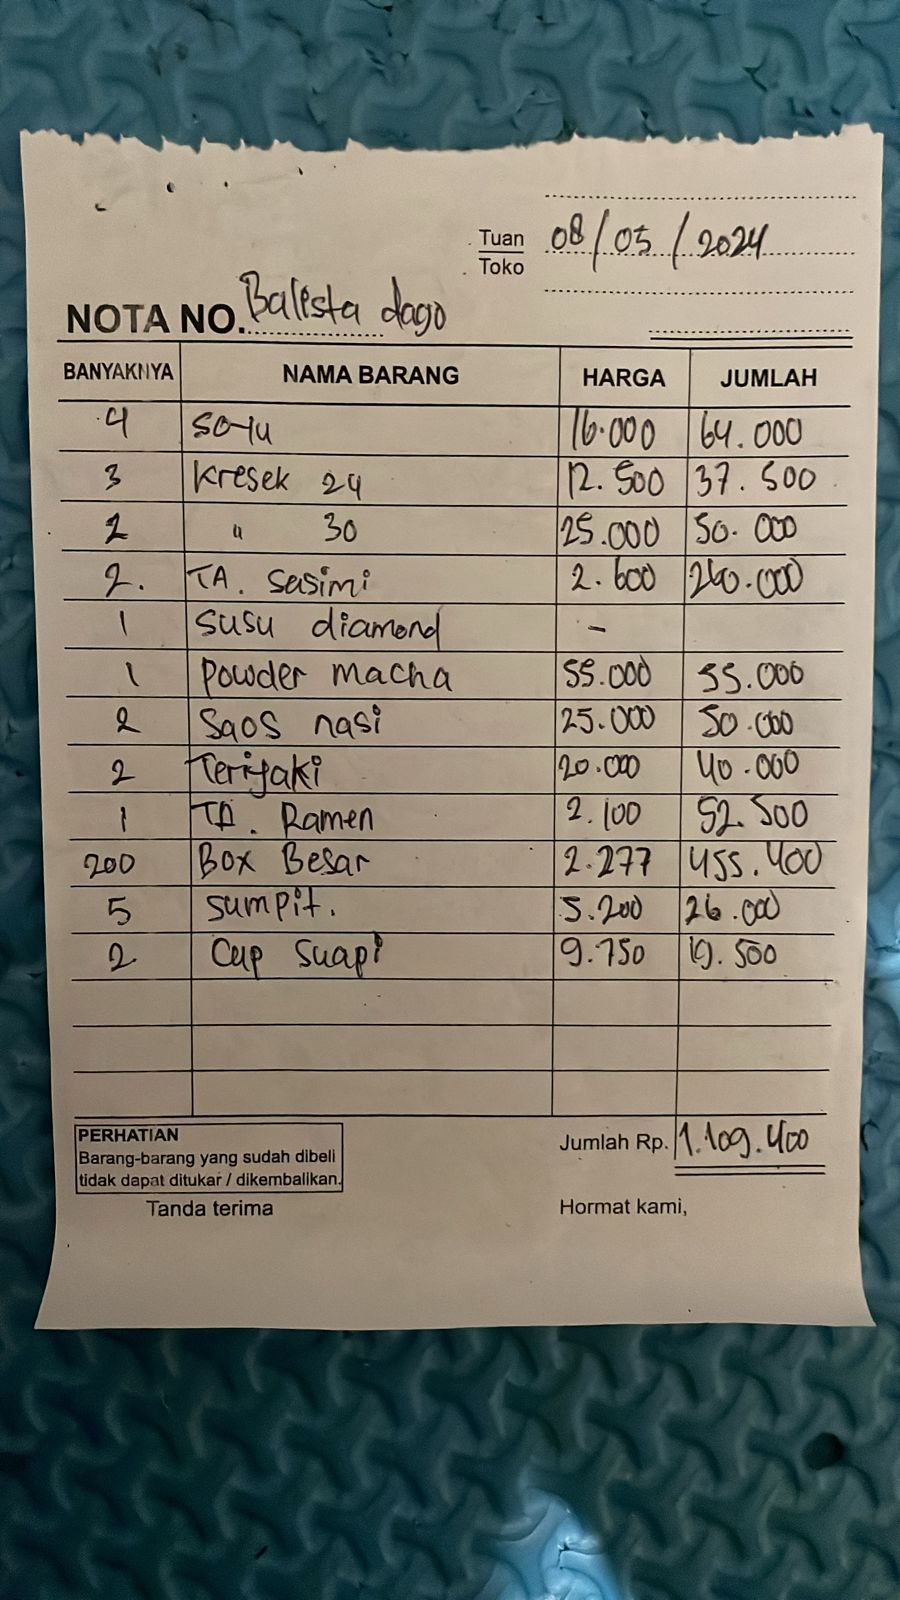 Tuan
Toko 08/05/2024
NOTA NO. Balista dago
BANYAKNYA NAMA BARANG HARGA JUMLAH
4 soyu 16.000 64.000
3 kresek 24 12.500 37.500
2 " 30 25.000 50.000
2. TA. Sasimi 2.600 260.000
1 susu diamond -
1 powder macha 55.000 55.000
2 Saos nasi 25.000 50.000
2 Teriyaki 20.000 40.000
1 TA. Ramen 2.100 52.500
200 Box Besar 2.277 455.400
5 sumpit. 5.200 26.000
2 Cup Suapi 9.750 19.500
PERHATIAN
Barang-barang yang sudah dibeli
tidak dapat ditukar / dikembalikan.
Jumlah Rp. 1.109.400
Tanda terima Hormat kami,